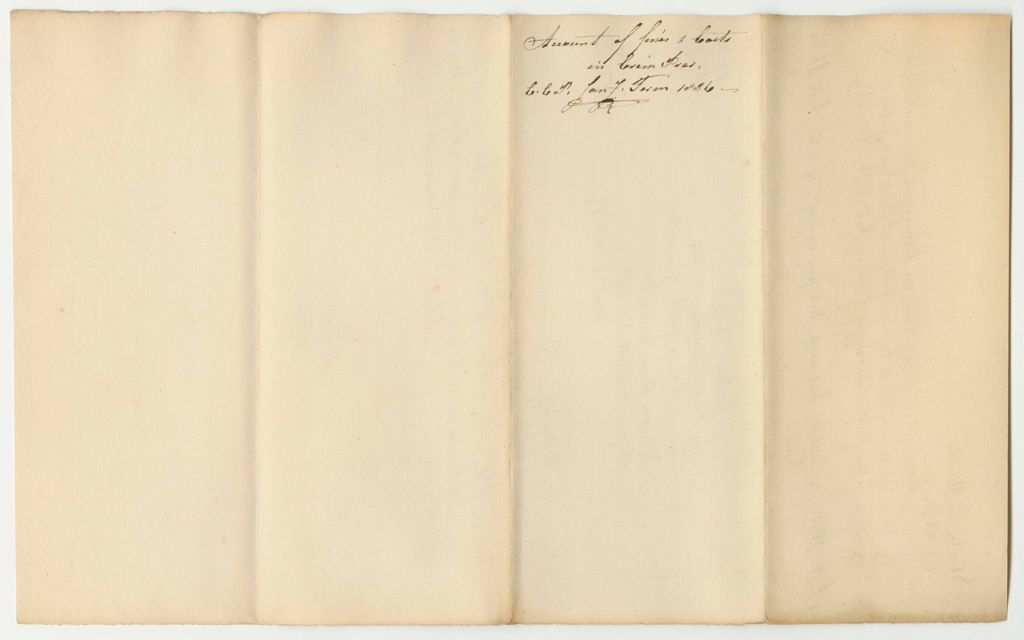 Account of fines & Costs
in Crim Pros.
C.C.P. Jany. Term 1836